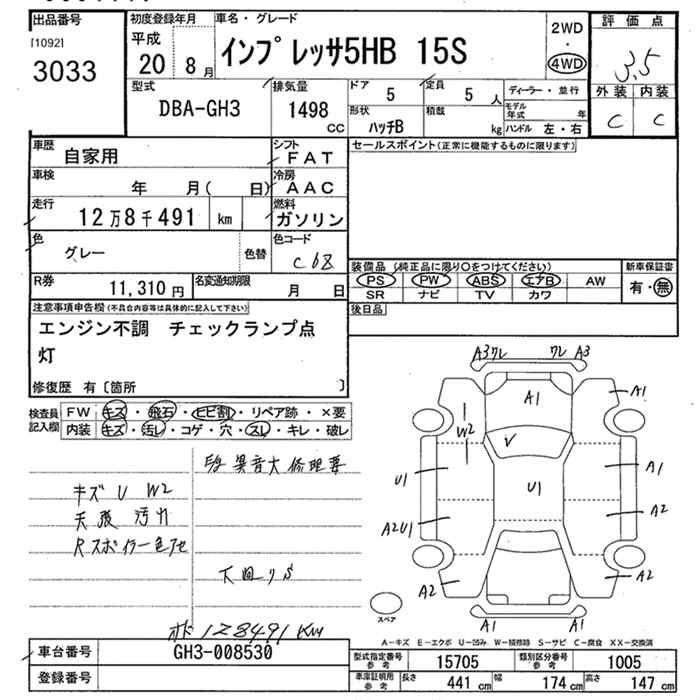 出品番号
[1092]
3033
初度登録年月
平成
20 8月
車名・グレード
インプレッサ5HB 15S
2WD
・
4WD
評価点
3.5
外装 内装
C C
型式
DBA-GH3
排気量
1498
CC
ドア
5
定員
5 人
形状
ハッチB
積載
kg
ディーラー・並行
モデル年式 年
ハンドル 左・右
車歴
自家用
シフト
FAT
車検
年 月( 日)
冷房
AAC
走行
12万8千491 km
燃料
ガソリン
色
グレー
色替
色コード
C68
R券
11,310円
名変通知期限
月 日
セールスポイント(正常に機能するものに限ります)
装備品 (純正品に限り○をつけてください)
PS PW ABS エアB AW
SR ナビ TV カワ
新車保証書
有・無
後日品
注意事項申告欄(不具合内容等は具体的に記入して下さい)
エンジン不調 チェックランプ点
灯
修復歴 有〔箇所 〕
検査員
記入欄
FW キズ・飛石・ヒビ割・リペア跡・×要
内装 キズ・汚レ・コゲ・穴・スレ・キレ・破レ
異音大 修理要
キズ U W2
天張 汚れ
Rスポイラー色アセ
下回りS
オド 128491KM
A3ワレ
ワレ A3
A1
A1
W2
V
U1
U1
A1
A2U1
A2
A2
A2
A1
A1
スペア
A-キズ E-エクボ U-凹み W-補修跡 S-サビ C-腐食 XX-交換済
車台番号
GH3-008530
登録番号
型式指定番号
参考
15705
類別区分番号
参考
1005
車庫証明用
参考
長さ 441 cm
幅 174 cm
高さ 147 cm